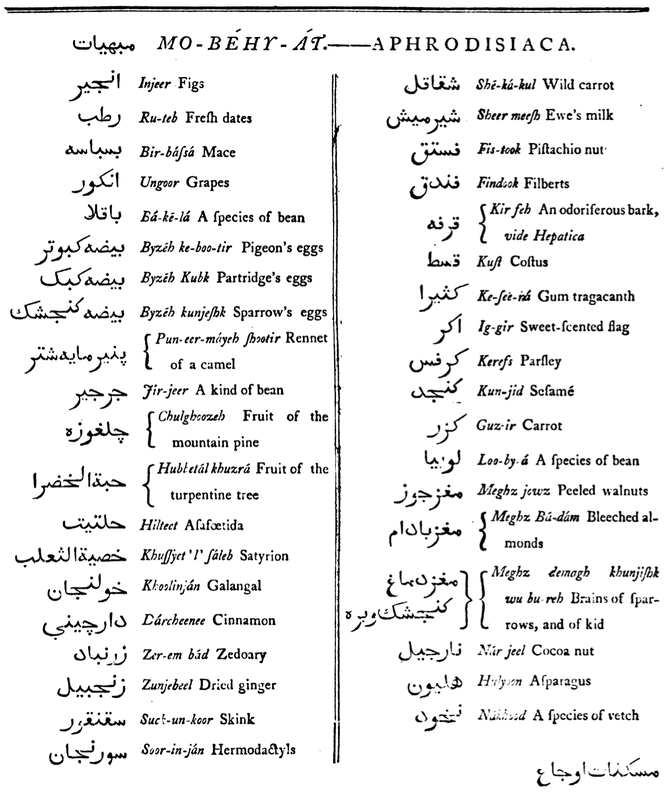 مبهيات MO-BÉHY-ÁT.——APHRODISIACA.
انجير Injeer Figs
رطب Ru-teb Freſh dates
بسباسه Bir-báſsá Mace
انكور Ungoor Grapes
باقلا Bá-kē-lá A ſpecies of bean
بيضه كبوتر Byzēh ke-boo-tir Pigeon's eggs
بيضه كبك Byzēh Kubk Partridge's eggs
بيضه كنجشك Byzēh kunjeſhk Sparrow's eggs
پنير مايه شتر Pun-eer-máyeh ſhootir Rennet
of a camel
جرجير Jir-jeer A kind of bean
چلغوزه Chulghoozeh Fruit of the
mountain pine
حبة الخضرا Hubletál khuzrá Fruit of the
turpentine tree
حلتيت Hilteet Aſafœtida
خصية الثعلب Khuſſyet 'l' ſáleb Satyrion
خولنجان Khoolinján Galangal
دارچيني Dárcheenee Cinnamon
زرنباد Zer-em bád Zedoary
زنجبيل Zunjebeel Dried ginger
سقنقور Suck-un-koor Skink
سورنجان Soor-in-ján Hermodactyls
شقاقل Shē-ká-kul Wild carrot
شيرميش Sheer meeſh Ewe's milk
فستق Fis-took Piſtachio nut
فندق Findook Filberts
قرفه Kir feh An odoriferous bark,
vide Hepatica
قسط Kuſt Coſtus
كثيرا Ke-ſee-rá Gum tragacanth
اكر Ig-gir Sweet-ſcented flag
كرفس Kerefs Parſley
كنجد Kun-jid Seſamé
كزر Guz-ir Carrot
لوبيا Loo-by-á A ſpecies of bean
مغزجوز Meghz jowz Peeled walnuts
مغزبادام Meghz Bá-dám Bleeched al-
monds
مغزدماغ Meghz demagh khunjiſhk
كنجشك وبره wu bu-reh Brains of ſpar-
rows, and of kid
نارجيل Nár jeel Cocoa nut
هليون Hulyoon Aſparagus
نخود Nukhood A ſpecies of vetch
مسكنات اوجاع